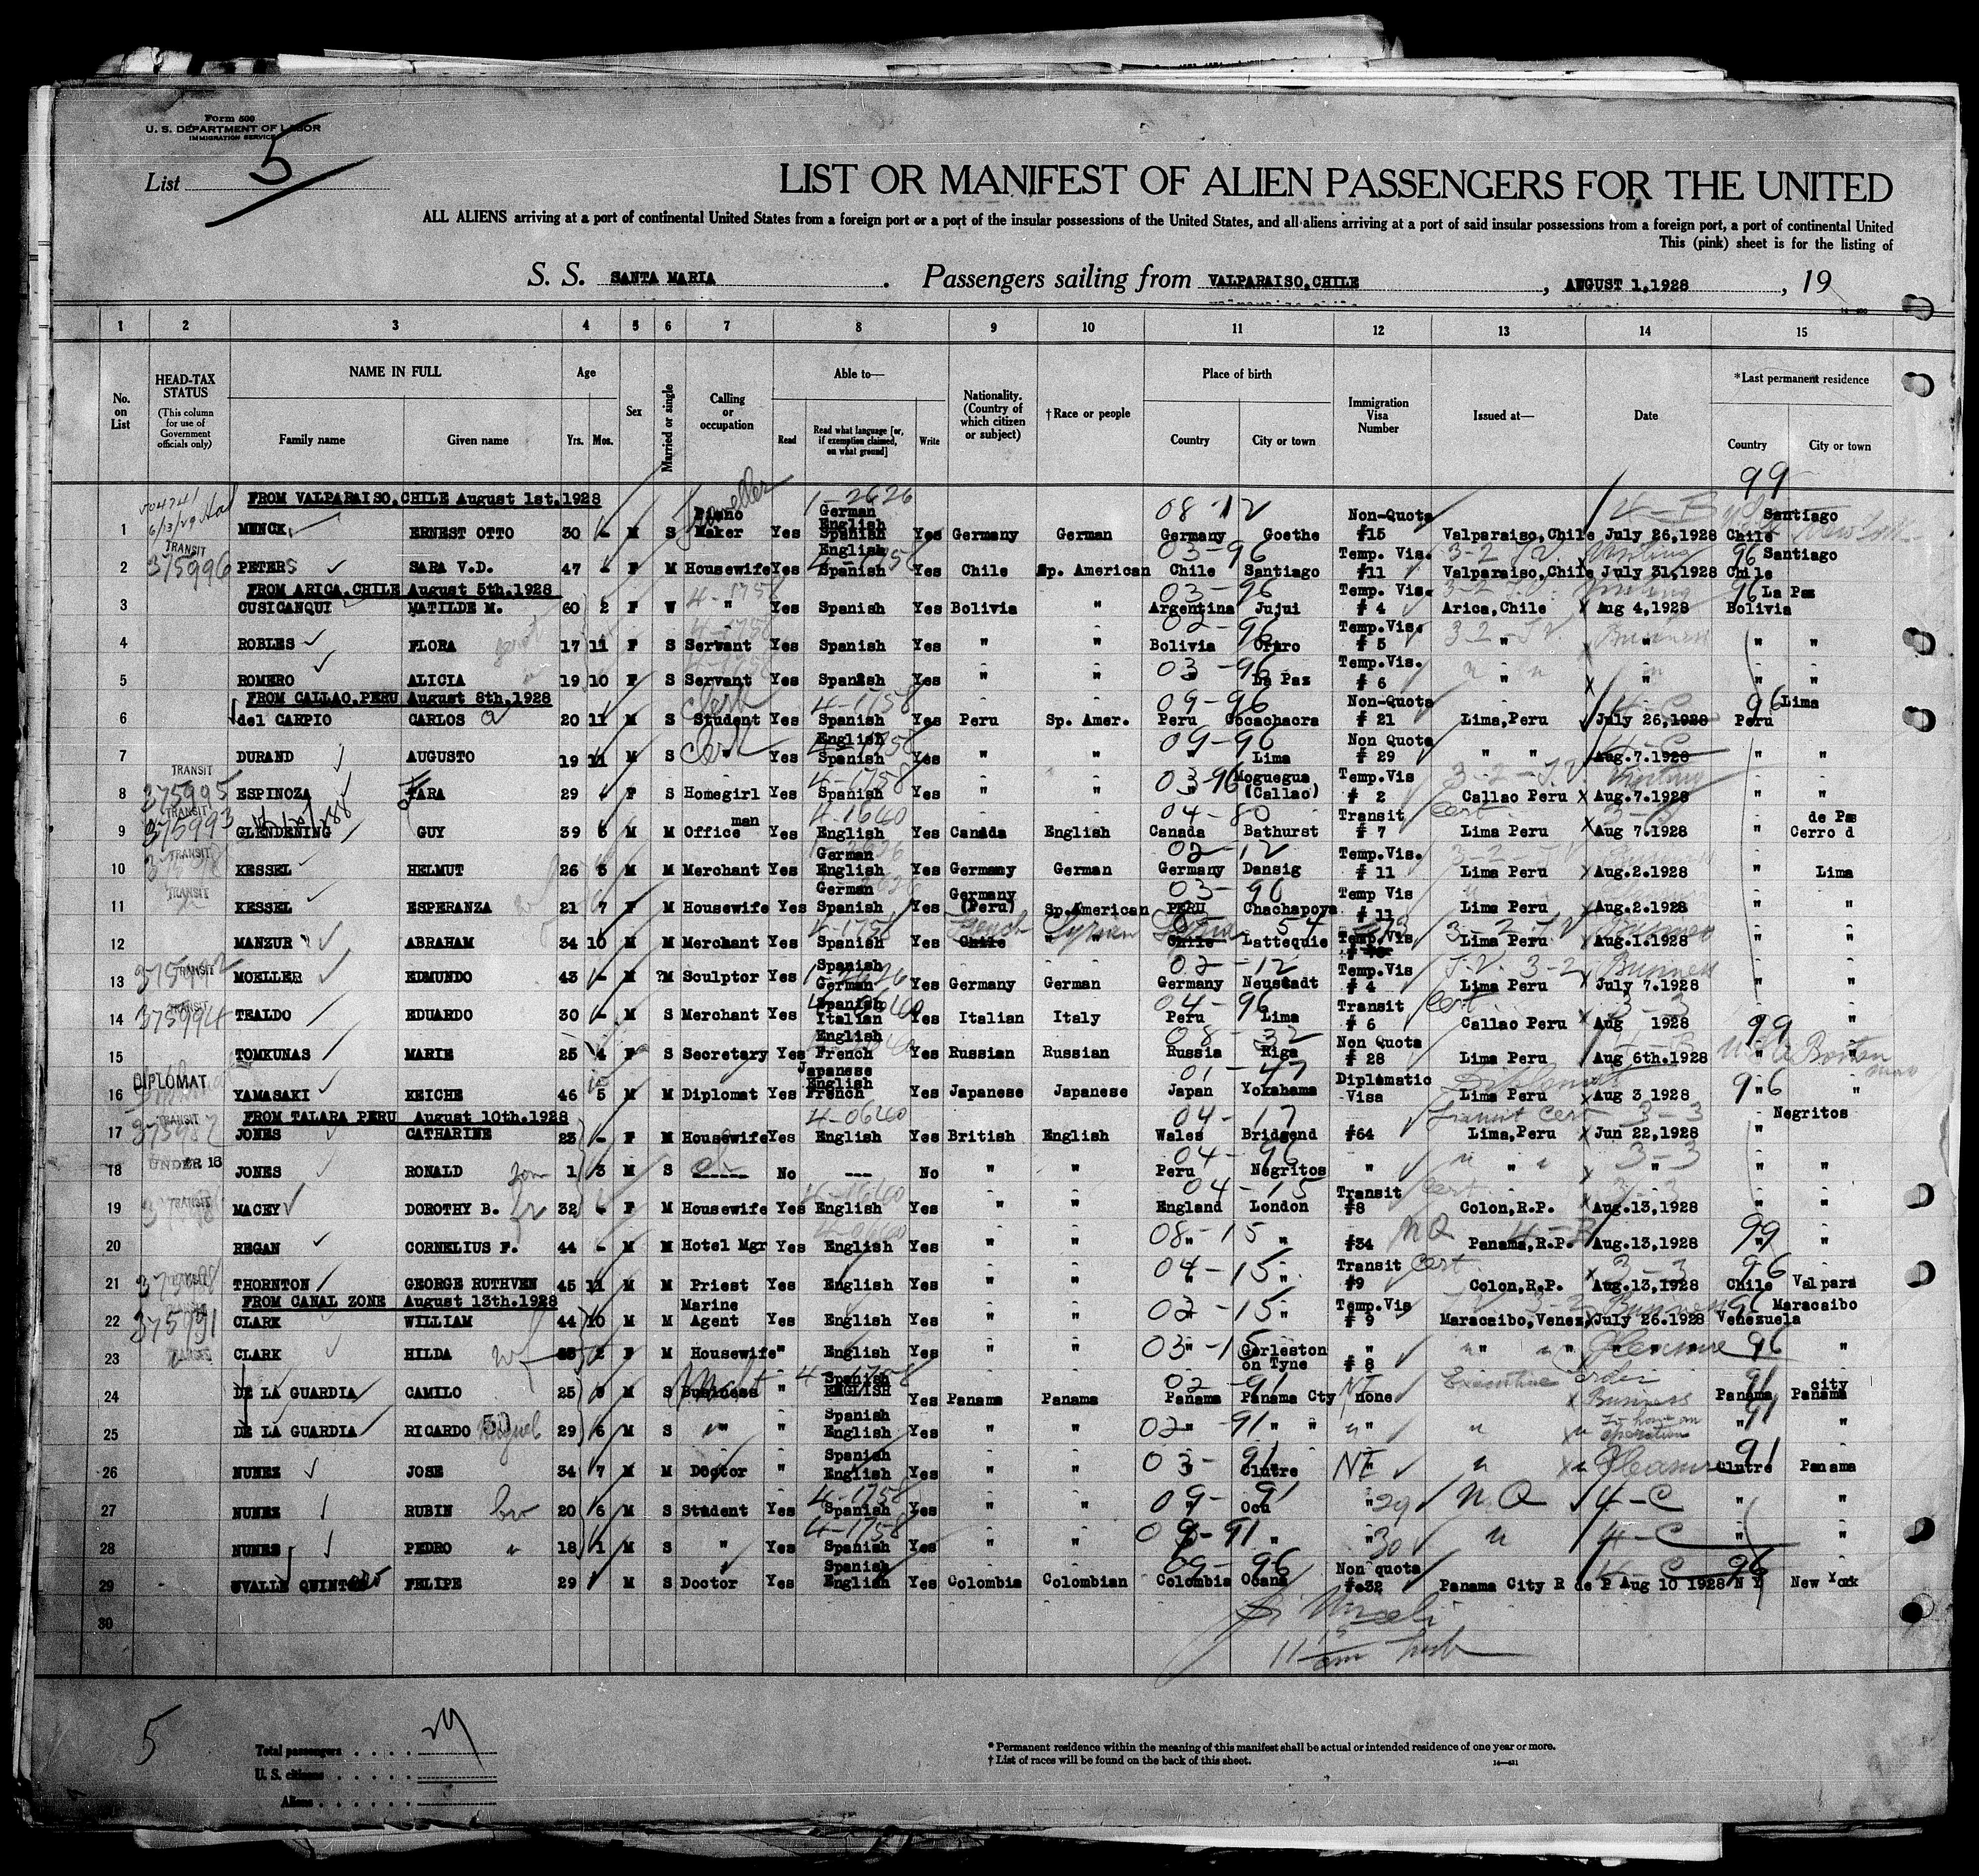 Form 500
U. S. DEPARTMENT OF LABOR
IMMIGRATION SERVICE
List 5
LIST OR MANIFEST OF ALIEN PASSENGERS FOR THE UNITED
ALL ALIENS arriving at a port of continental United States from a foreign port or a port of the insular possessions of the United States, and all aliens arriving at a port of said insular possessions from a foreign port, a port of continental United
This (pink) sheet is for the listing of
S. S. SANTA MARIA . Passengers sailing from VALPARAISO, CHILE , AUGUST 1, 1928 , 19
1 2 3 4 5 6 7 8 9 10 11 12 13 14 15
No. on List
HEAD-TAX STATUS (This column for use of Government officials only)
NAME IN FULL Family name Given name
Age Yrs. Mos.
Sex
Married or single
Calling or occupation
Able to— Read Read what language [or, if exemption claimed, on what ground] Write
Nationality. (Country of which citizen or subject)
† Race or people
Place of birth Country City or town
Immigration Visa Number
Issued at—
Date
*Last permanent residence Country City or town
99
FROM VALPARAISO, CHILE August 1st, 1928 1-2626
1 MENCK ERNEST OTTO 30 - M S Piano Maker Yes German English Spanish Yes Germany German 08-12 Germany Goethe Non-Quota #15 Valparaiso, Chile July 26, 1928 Chile Santiago
TRANSIT 375996
2 PETERS SARA V.D. 47 - F M Housewife Yes English Spanish Yes Chile Sp. American 03-96 Chile Santiago Temp. Vis. #11 3-2 T.V. Visiting Valparaiso, Chile July 31, 1928 96 Chile Santiago
FROM ARICA, CHILE August 5th, 1928
3 CUSICANQUI MATILDE M. 60 2 F W " 4-1758 Yes Spanish Yes Bolivia " 03-96 Argentina Jujui Temp. Vis. # 4 Arica, Chile Aug 4, 1928 96 Bolivia La Paz
4 ROBLES FLORA 17 11 F S Servant Yes Spanish Yes " " 02-96 Bolivia Oruro Temp.Vis. # 5 3-2-T.V. Business " " " "
5 ROMERO ALICIA 19 10 F S Servant Yes Spanish Yes " " 03-96 " La Paz Temp.Vis. # 6 " " " "
FROM CALLAO, PERU August 8th, 1928
6 del CARPIO CARLOS a 20 11 M S Clerk Student Yes 4-1758 Spanish Yes Peru Sp. Amer. 09-96 Peru Cocachacra Non-Quota # 21 Lima, Peru 4-C July 26, 1928 96 Peru Lima
7 DURAND AUGUSTO 19 11 M S Clerk " Yes English Spanish Yes " " 09-96 " Lima Non Quota # 29 " " 4-C Aug. 7. 1928 " "
TRANSIT 375995
8 ESPINOZA TARA 29 - F S Homegirl Yes 4-1758 Spanish Yes " " 03-96 " Moguegua (Callao) Temp.Vis # 2 3-2-T.V. Visiting Callao Peru Aug. 7. 1928 " "
TRANSIT 375993
9 GLENDENING GUY 39 5 M M Office man Yes 4-1640 English Yes Canada English 04-80 Canada Bathurst Transit # 7 Cert. Lima Peru Aug 7. 1928 " Cerro d de Pas
TRANSIT
10 KESSEL HELMUT 26 5 M M Merchant Yes German English Yes Germany German 02-12 Germany Dansig Temp.Vis. # 11 3-2-T.V. Lima Peru Aug. 2. 1928 " Lima
TRANSIT
11 KESSEL ESPERANZA 21 7 F M Housewife Yes German Spanish Yes Germany (Peru) Sp. American 03-96 PERU Chachapoya Temp Vis # 11 Lima Peru Aug. 2. 1928 " "
12 MANZUR ABRAHAM 34 10 M M Merchant Yes 4-1758 Spanish Yes French Chile " " Syrian Chile Lattequie Temp.Vis 3-2 T.V. Business Lima Peru Aug. 1. 1928 " "
TRANSIT 375992
13 MOELLER EDMUNDO 43 - M ?M Sculptor Yes Spanish German Yes Germany German 02-12 Germany Neustadt Temp.Vis # 4 T.V. 3-2 Business Lima Peru July 7. 1928 "
TRANSIT 375994
14 TEALDO EDUARDO 30 - M S Merchant Yes Spanish Italian Yes Italian Italy 04-96 Peru Lima Transit # 6 Cert. 3-3 Callao Peru Aug 1928 "
15 TOMKUNAS MARIE 25 4 F S Secretary Yes English French Yes Russian Russian 08-32 Russia Riga Non Quota # 28 Lima Peru Aug 6th. 1928 99 " Boston
DIPLOMAT
16 YAMASAKI KEICHE 46 5 M M Diplomat Yes Japanese English French Yes Japanese Japanese 01-47 Japan Yokahama Diplomatic Visa Diplomat Lima Peru Aug 3 1928 96 " "
FROM TALARA PERU August 10th. 1928
TRANSIT 375987
17 JONES CATHARINE 23 - F M Housewife Yes 4-0640 English Yes British English 04-17 Wales Bridgend #64 Transit Cert 3-3 Lima, Peru Jun 22, 1928 " Negritos
UNDER 18
18 JONES RONALD son 1 3 M S ----- No --- No " " 04-96 Peru Negritos " " 3-3 " " "
TRANSIT
19 MACEY DOROTHY B. 32 - F M Housewife Yes English Yes " " 04-15 England London Transit #8 Cert. 3-3 Colon, R.P. Aug. 13, 1928 " "
20 REGAN CORNELIUS F. 44 - M M Hotel Mgr Yes English Yes " " 08-15 " " #34 NQ 4-B Panama, R.P. Aug. 13, 1928 99 " "
21 THORNTON GEORGE RUTHVEN 45 11 M M Priest Yes English Yes " " 04-15 " " Transit #9 Cert. 3-3 Colon, R.P. Aug. 13, 1928 96 Chile Valpara
FROM CANAL ZONE August 13th. 1928
375991
22 CLARK WILLIAM 44 10 M M Marine Agent Yes English Yes " " 02-15 " " Temp.Vis # 9 Business Maracaibo, Venez. July 26. 1928 96 Venezuela Maracaibo
23 CLARK HILDA wf 2 F M Housewife " English Yes " " 03-15 " Gorleston on Tyne " # 8 " " " " Pleasure 96
24 DE LA GUARDIA CAMILO 25 9 M S Business " Spanish ENGLISH Yes Panama Panama 02-91 Panama Panama Cty none Executive Order Business 91 Panama Panama city
25 DE LA GUARDIA RICARDO Miguel 29 6 M S " " Spanish English Yes " " 02-91 " " " " " To have an operation 91 " "
26 NUNEZ JOSE 34 7 M M Doctor " Spanish English Yes " " 03-91 " Clutre " " " Pleasure 91 Clutre Panama
27 NUNEZ RUBIN bro 20 6 M S Student Yes 4-1758 Spanish Yes " " 09-91 " Ocu " 29 NQ 4-C " "
28 NUNES PEDRO " 18 1 M S " Yes 4-1758 Spanish Yes " " 09-91 " " 30 " 4-C " "
29 UVALLE FELIPE 29 M S Doctor Yes Spanish English Yes Colombia Colombian 09-96 Colombia Ocana Non quota #32 4-C Panama City R de P Aug 10 1928 96 N Y New York
30
5
Total passengers . . . . 29
U. S. citizens . . . . .
Aliens . . . . . .
* Permanent residence within the meaning of this manifest shall be actual or intended residence of one year or more.
† List of races will be found on the back of this sheet.